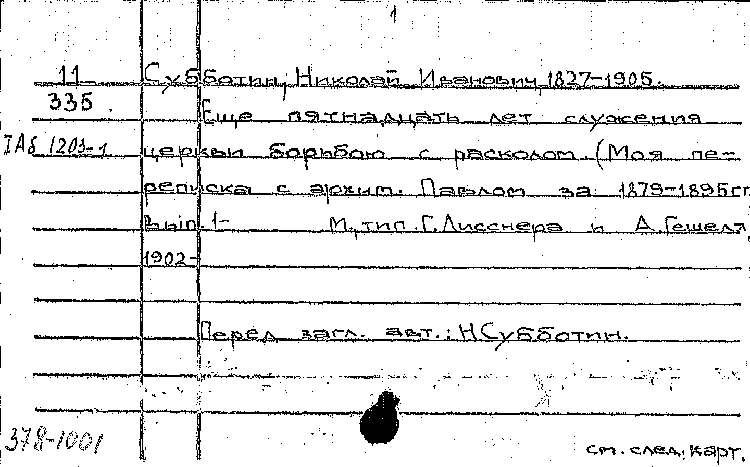 1
11 Субботин, Николай Иванович, 1827-1905.
335. Еще пятнадцать лет служения
IАб 1203-1 церкви борьбою с расколом. (Моя пе-
реписка с архим. Павлом за 1879-1895гг.
Вып. 1- М., тип. Г. Лисснера и А. Гешеля,
1902-
Перед загл. авт.: Н Субботин.
378-1001
см. след. карт.